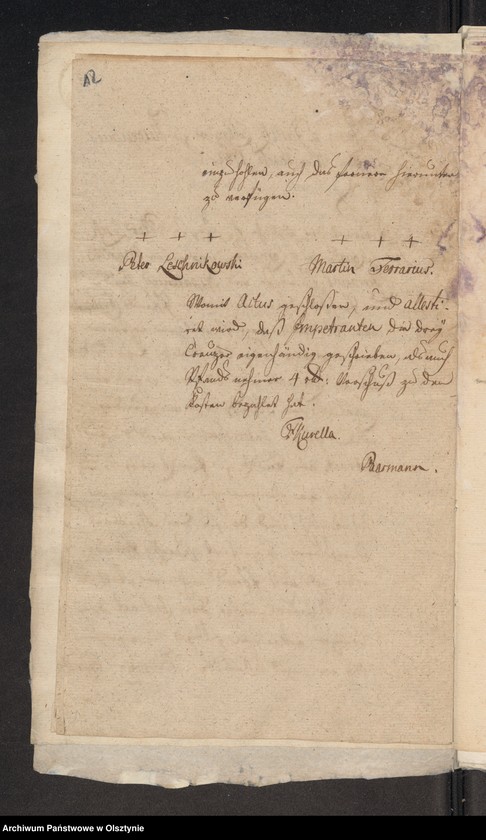 12
einzuhohlen, auch das fernere hierunter
zu verfügen.
+ + + + + +
Peter Leschnikowski Martin Ferrarius.
Womit Actus geschlossen, und attesti-
ret wird, daß Impetranten die drey
Creuzer eigenhändig geschrieben, als auch
Pfands nehmer 4 rtl: Vorschuß zu den
Kosten bezahlet hat.
Kurella.
Barmann.
Archiwum Państwowe w Olsztynie